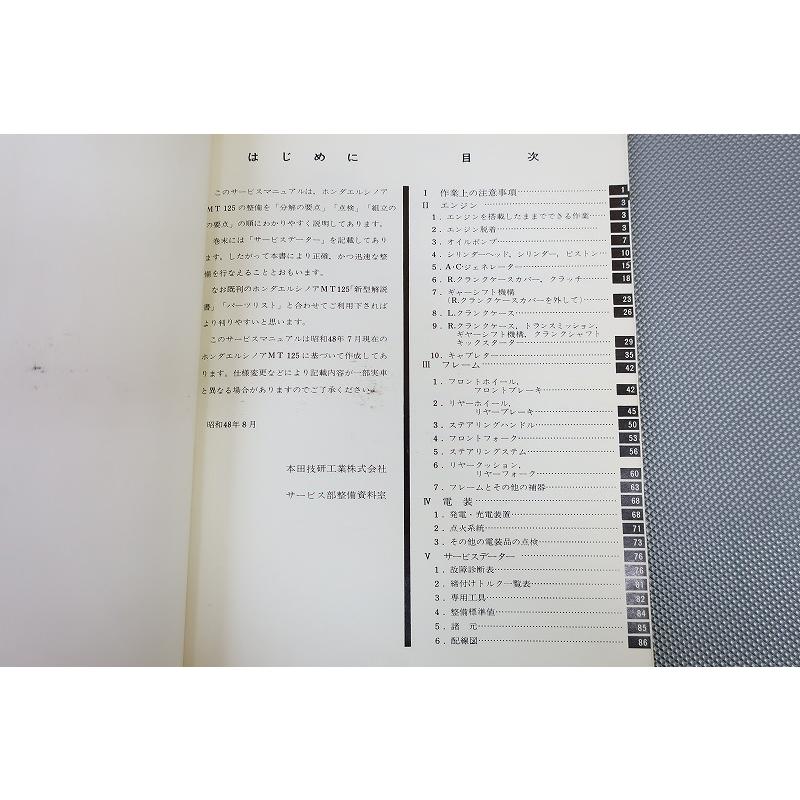 はじめに
このサービスマニュアルは、ホンダエルシノア
MT125の整備を「分解の要点」「点検」「組立の
の要点」の順にわかりやすく説明してあります。
巻末には「サービスデーター」を記載してあり
ます。したがって本書により正確、かつ迅速な整
備を行なえることとおもいます。
なお既刊のホンダエルシノアMT125「新型解説
書」「パーツリスト」と合わせてご利用下されば
より判りやすいと思います。
このサービスマニュアルは昭和48年7月現在の
ホンダエルシノアMT125に基づいて作成してあ
ります。仕様変更などにより記載内容が一部実車
と異なる場合がありますのでご了承ください。
昭和48年8月
本田技研工業株式会社
サービス部整備資料室
目次
Ⅰ 作業上の注意事項 1
Ⅱ エンジン 3
1．エンジンを搭載したままでできる作業 3
2．エンジン脱着 3
3．オイルポンプ 7
4．シリンダーヘッド，シリンダー，ピストン 10
5．A・Cジェネレーター 15
6．R.クランクケースカバー，クラッチ 18
7．ギャーシフト機構
(R.クランクケースカバーを外して) 23
8．L.クランクケース 26
9．R.クランクケース，トランスミッション，
ギヤーシフト機構，クランクシャフト
キックスターター 29
10．キャブレター 35
Ⅲ フレーム 42
1．フロントホイール，
フロントブレーキ 42
2．リヤーホイール，
リヤーブレーキ 45
3．ステアリングハンドル 50
4．フロントフォーク 53
5．ステアリングステム 56
6．リヤークッション，
リヤーフォーク 60
7．フレームとその他の補器 63
Ⅳ 電装 68
1．発電・充電装置 68
2．点火系統 71
3．その他の電装品の点検 73
Ⅴ サービスデーター 76
1．故障診断表 76
2．締付けトルク一覧表 81
3．専用工具 82
4．整備標準値 84
5．諸元 85
6．配線図 86